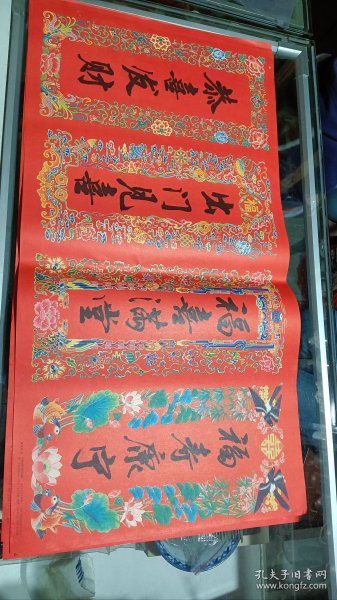 恭喜发财
出门见喜
福
福喜满堂
福寿康宁
囍
孔夫子旧书网
www.kongfz.com